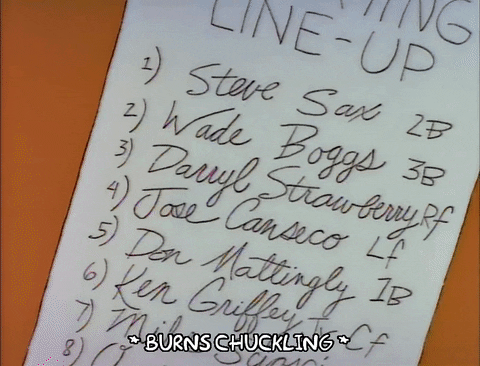 LINE-UP
1) Steve Sax 2B
2) Wade Boggs 3B
3) Darryl Strawberry Rf
4) Jose Canseco Lf
5) Don Mattingly 1B
6) Ken Griffey Jr Cf
7) Mike
8)
* BURNS CHUCKLING *